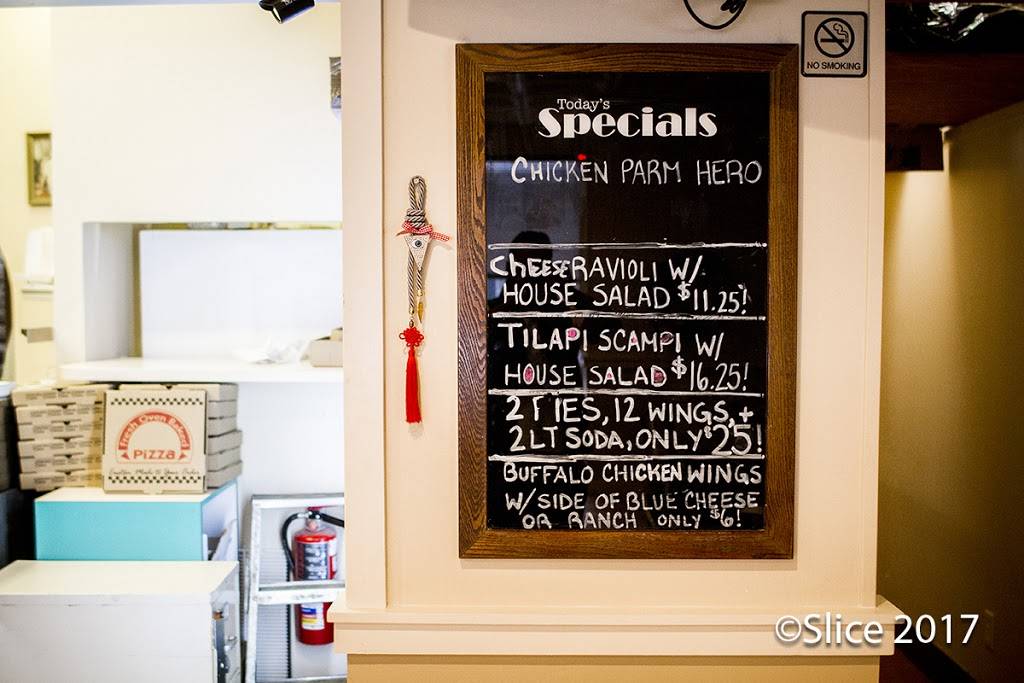 NO SMOKING
Today's
Specials
CHICKEN PARM HERO
CHEESE RAVIOLI W/
HOUSE SALAD $11.25!
TILAPI SCAMPI W/
HOUSE SALAD $16.25!
2 PIES, 12 WINGS, +
2 LT SODA, ONLY $25!
BUFFALO CHICKEN WINGS
W/ SIDE OF BLUE CHEESE
OR RANCH ONLY $6!
Fresh Oven Baked
PIZZA
Custom Made to Your Order
©Slice 2017